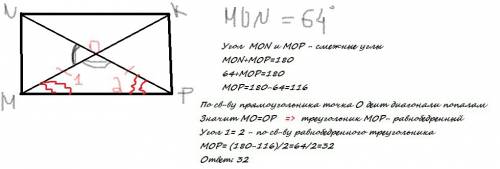 N K
MON = 64°
O
1 2
M P
Угол MON и MOP - смежные углы
MON+MOP=180
64+MOP=180
MOP=180-64=116
По св-ву прямоугольника точка O деит диагонали попалам
Значит MO=OP => треугольник MOP- равнобедренный
Угол 1= 2 - по св-ву равнобедренного треугольника
MOP= (180-116)/2=64/2=32
Ответ: 32